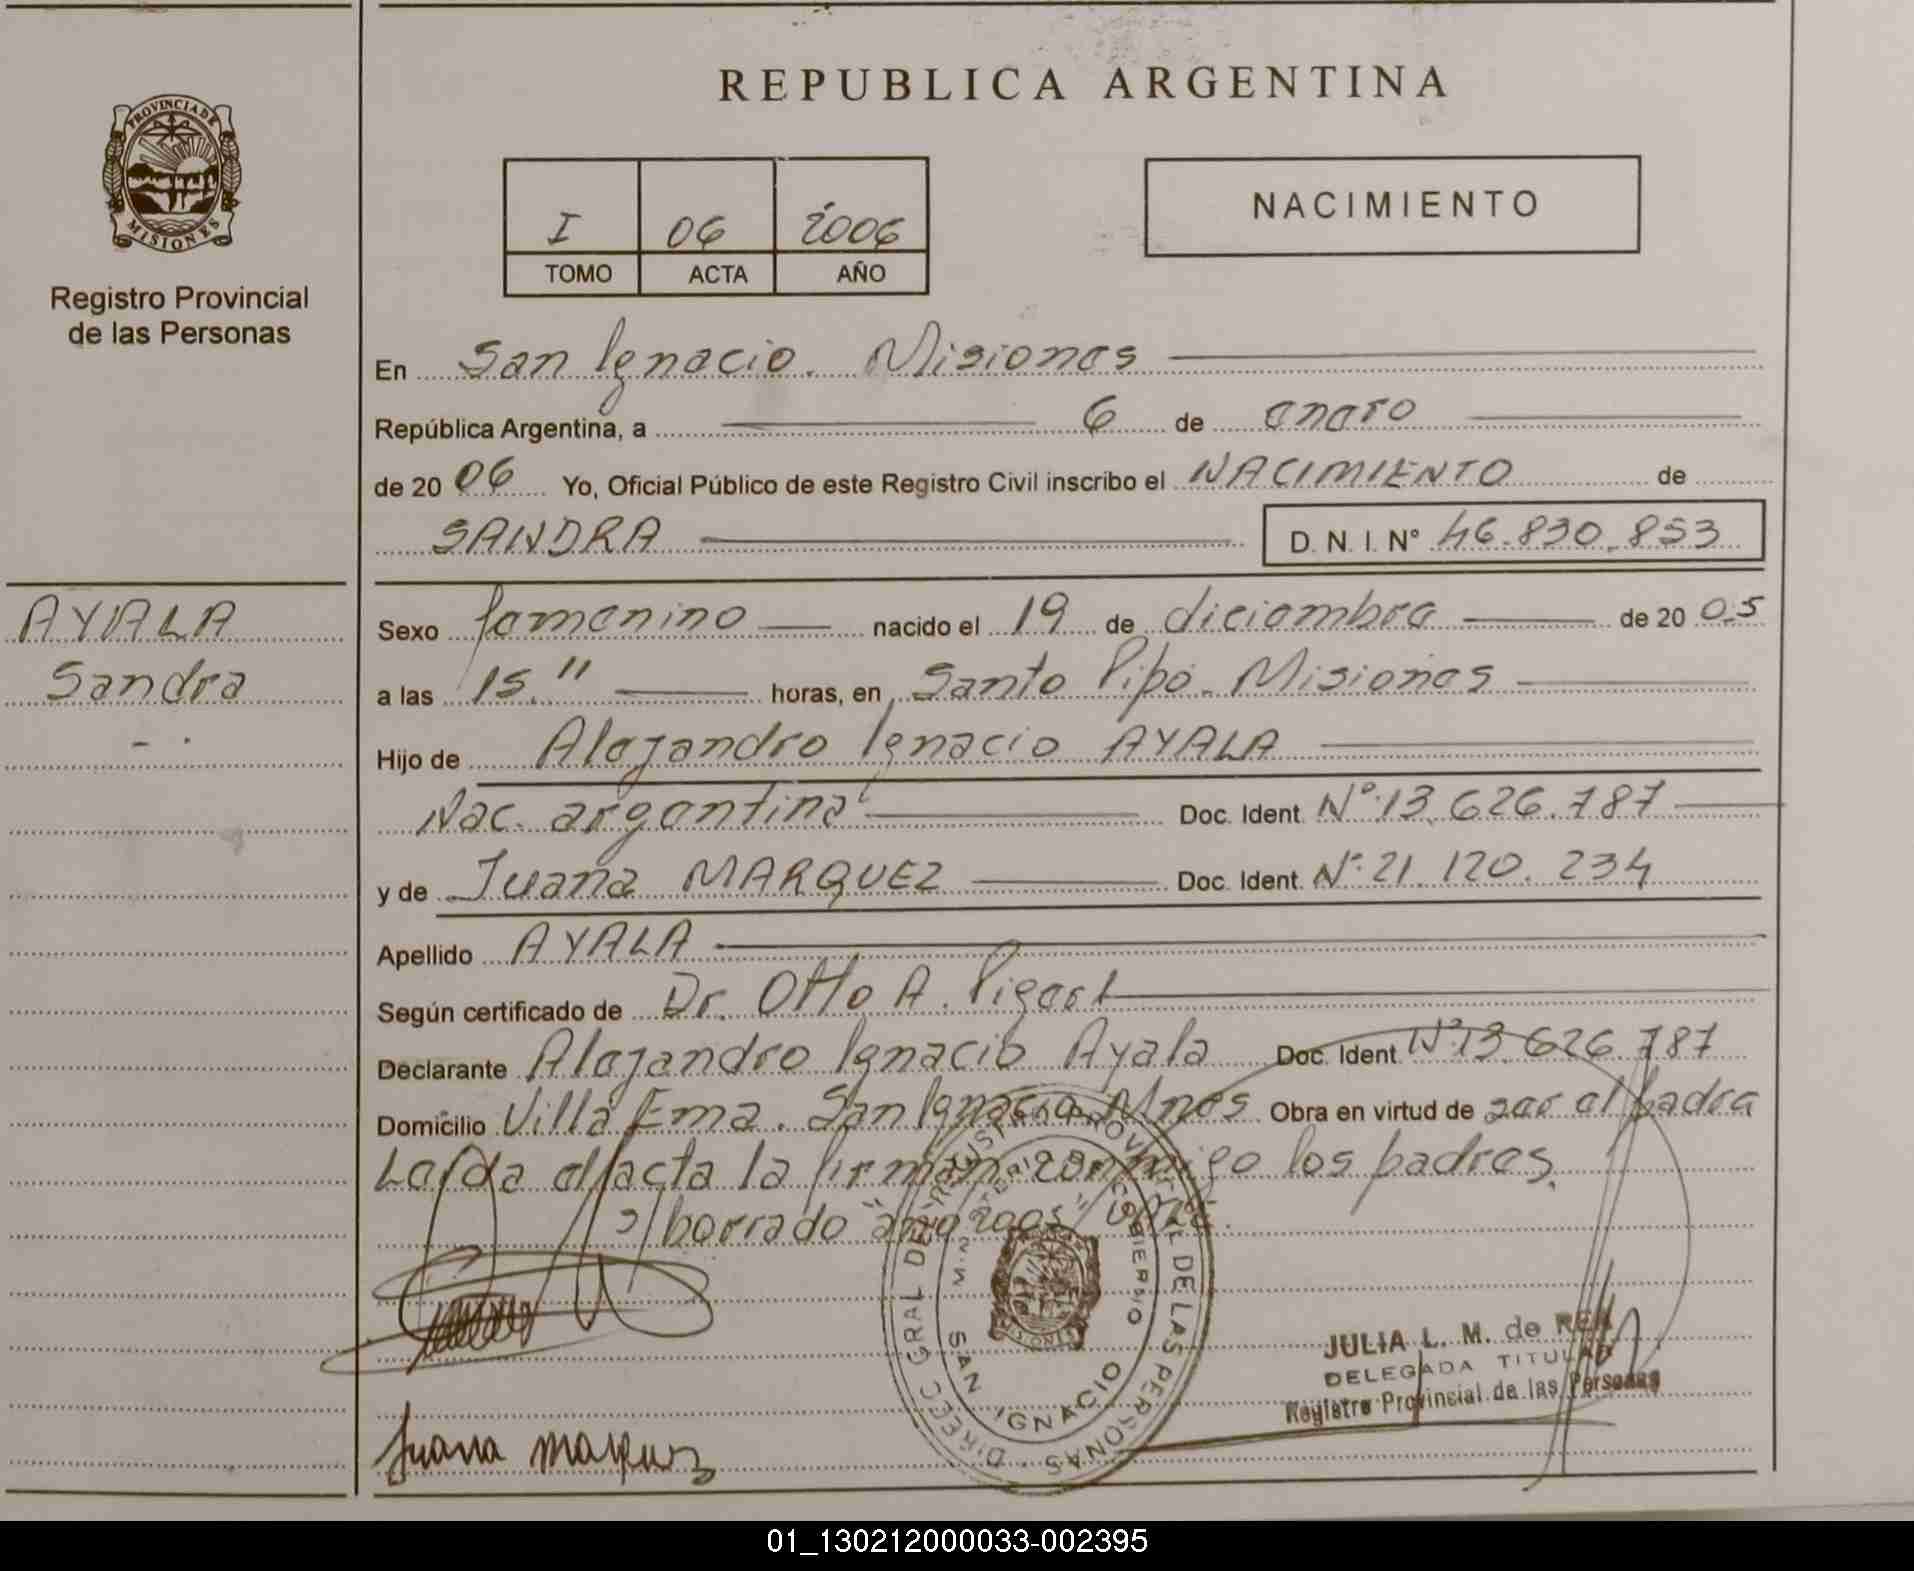 REPUBLICA ARGENTINA
PROVINCIA DE
MISIONES
Registro Provincial
de las Personas
I 06 2006
TOMO ACTA AÑO
NACIMIENTO
En San Ignacio. Misiones
República Argentina, a 6 de enero
de 20 06 Yo, Oficial Público de este Registro Civil inscribo el NACIMIENTO de
SANDRA D. N. I. Nº 46.830.853
AYALA
Sandra
Sexo femenino nacido el 19 de diciembre de 20 05
a las 15." horas, en Santo Pipó. Misiones
Hijo de Alejandro Ignacio AYALA
Nac. argentina Doc. Ident. Nº 13.626.787
y de Juana MARQUEZ Doc. Ident. Nº 21.120.234
Apellido AYALA
Según certificado de Dr. Otto A.
Declarante Alejandro Ignacio Ayala Doc. Ident Nº 13.626.787
Domicilio Villa Ema. San Ignacio Mnes Obra en virtud de ser el padre
Leída el acta la firman conmigo los padres.
borrado "año 2005"
DIREC. GRAL. DEL REGISTRO PROVINCIAL DE LAS PERSONAS
MINISTERIO DE GOBIERNO
SAN IGNACIO
MISIONES
JULIA L. M. de
DELEGADA TITULAR
Registro Provincial de las Personas
Juana Marquez
01_130212000033-002395